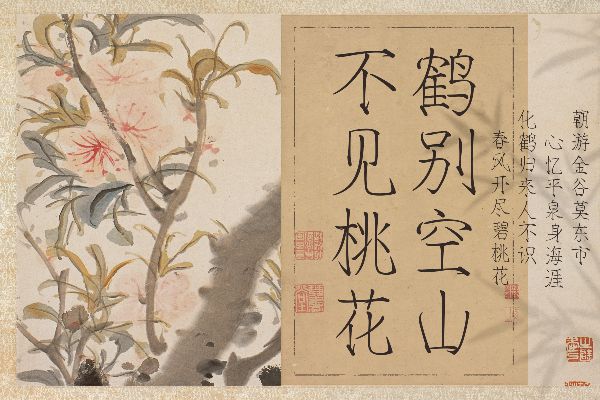 鹤别空山
不见桃花
朝游金谷莫东市
心忆平泉身海涯
化鹤归来人不识
春风开尽碧桃花